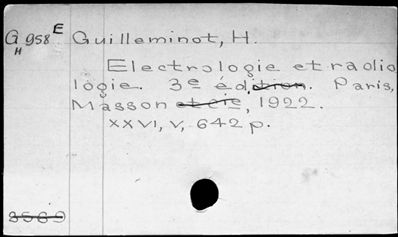 G 958 E Guilleminot, H.
H
Electrologie et radio
logie. 3e édition. Paris,
Masson et cie, 1922.
XXVI, V, 642 p.
3569